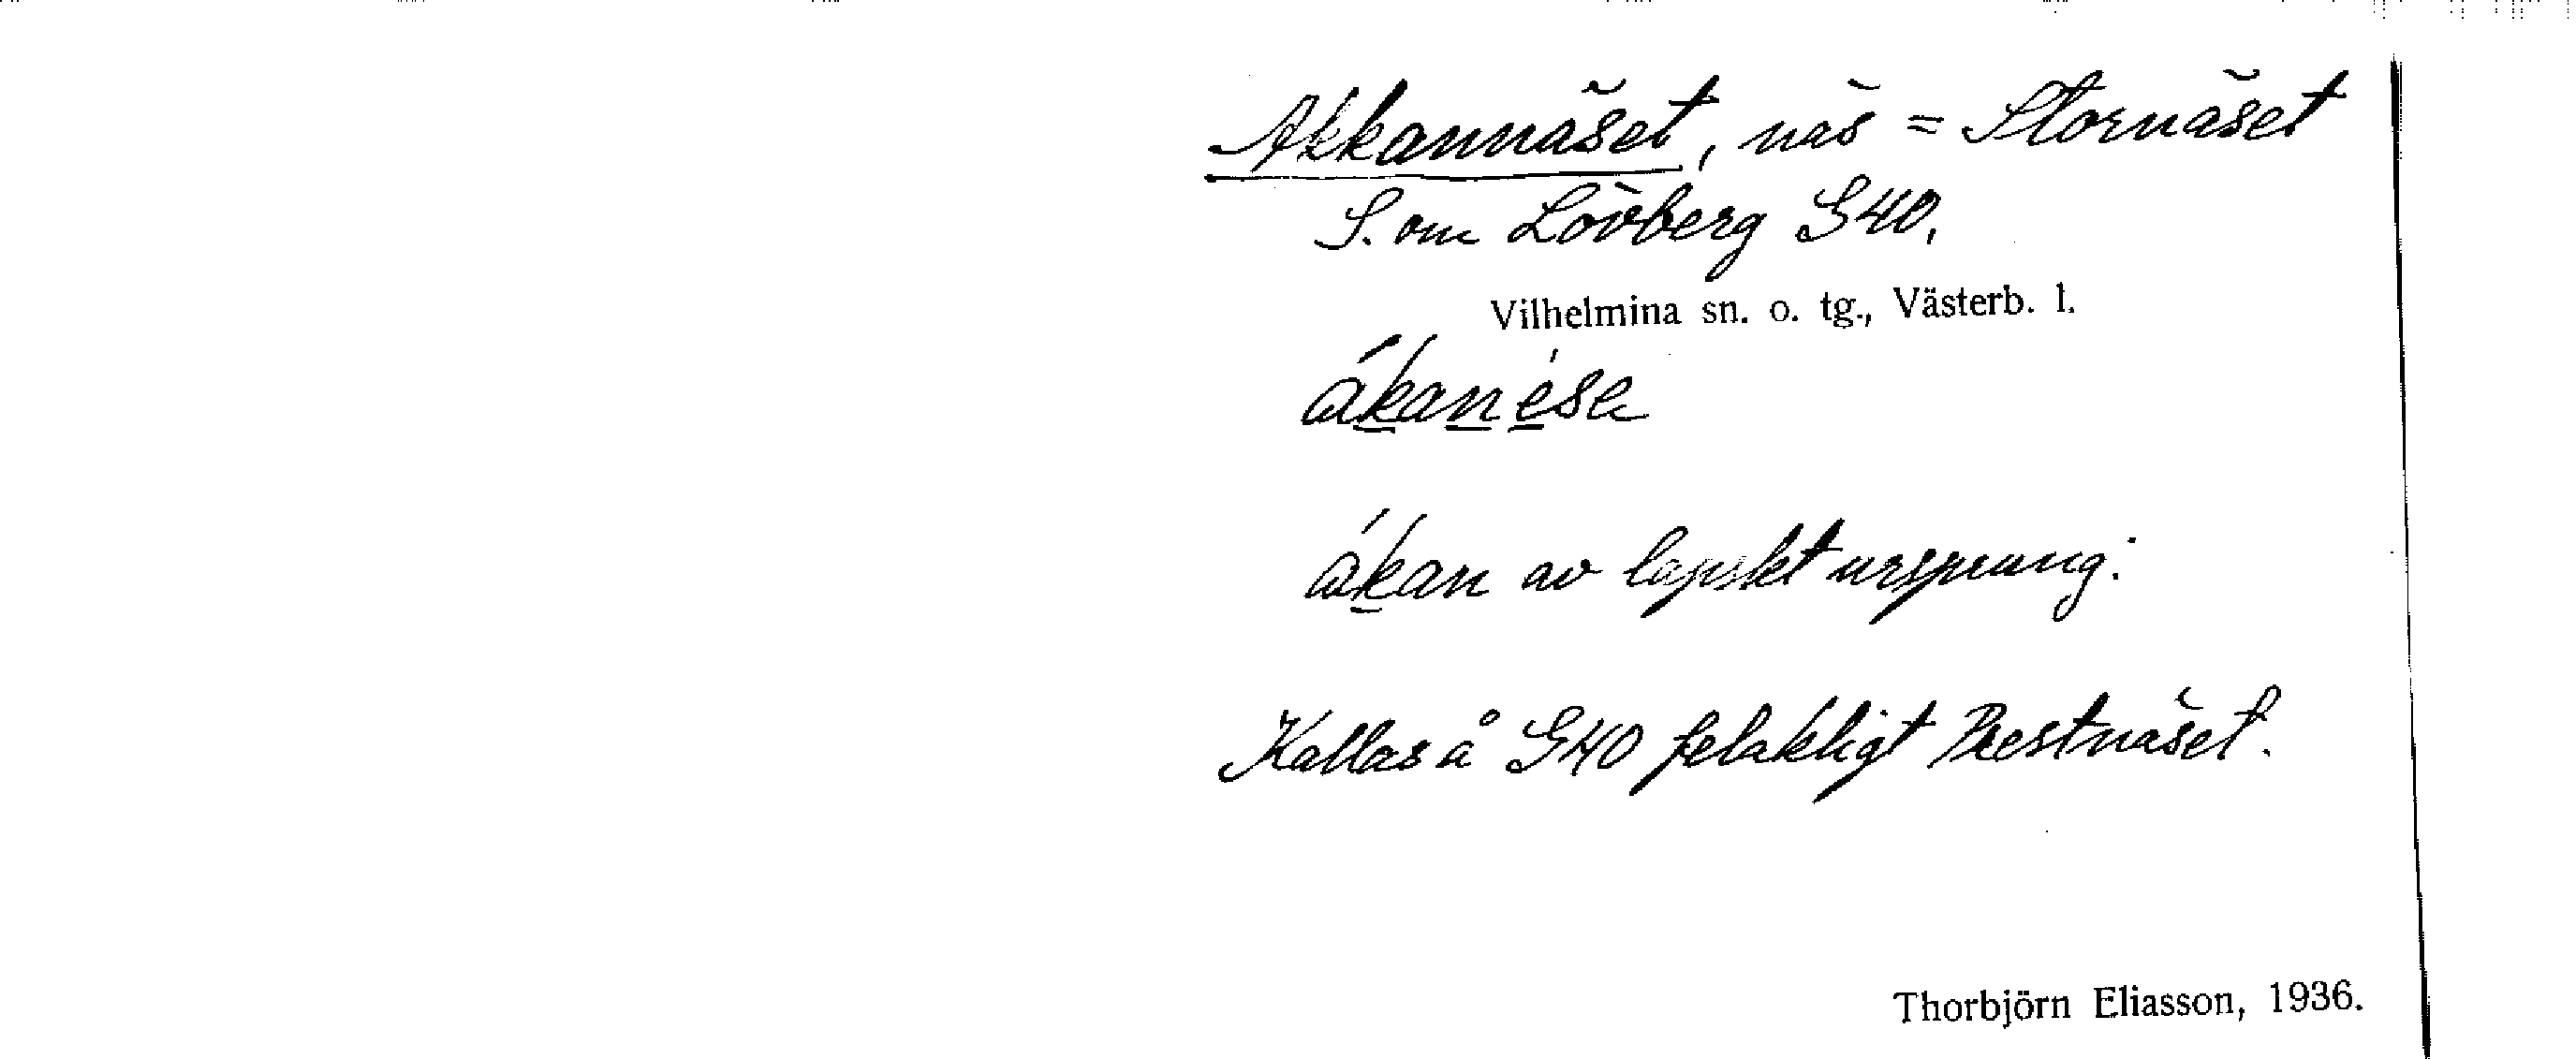 Akkannäset, näs = Stornäset
S. om Lövberg G40.
Vilhelmina sn. o. tg., Västerb. l.
ákanése
ákan av lapskt ursprung.
Kallas å G40 felaktligt Prestnäset.
Thorbjörn Eliasson, 1936.